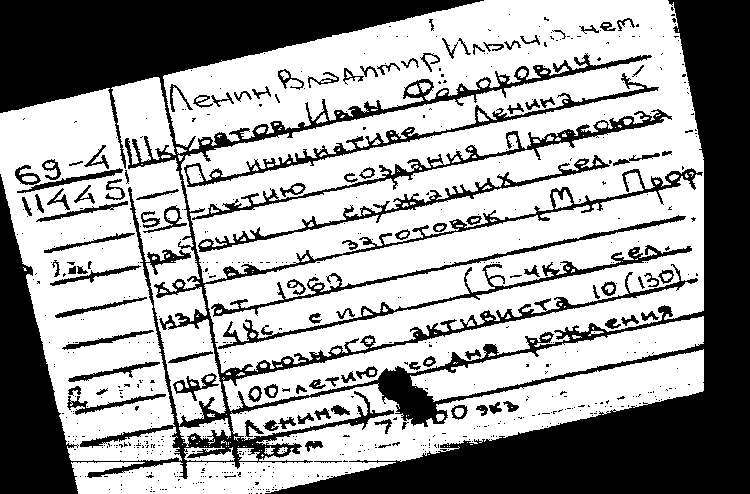 Ленин, Владимир Ильич, о нем.
Шкуратов, Иван Федорович.
69-4
11445
По инициативе Ленина. К
50-летию создания Профсоюза
рабочих и служащих сел.
хоз-ва и заготовок. [М.], Проф
издат, 1969.
48с. с илл. (Б-чка сел.
профсоюзного активиста 10(130).
К 100-летию со дня рождения
Ленина).
экз
20см